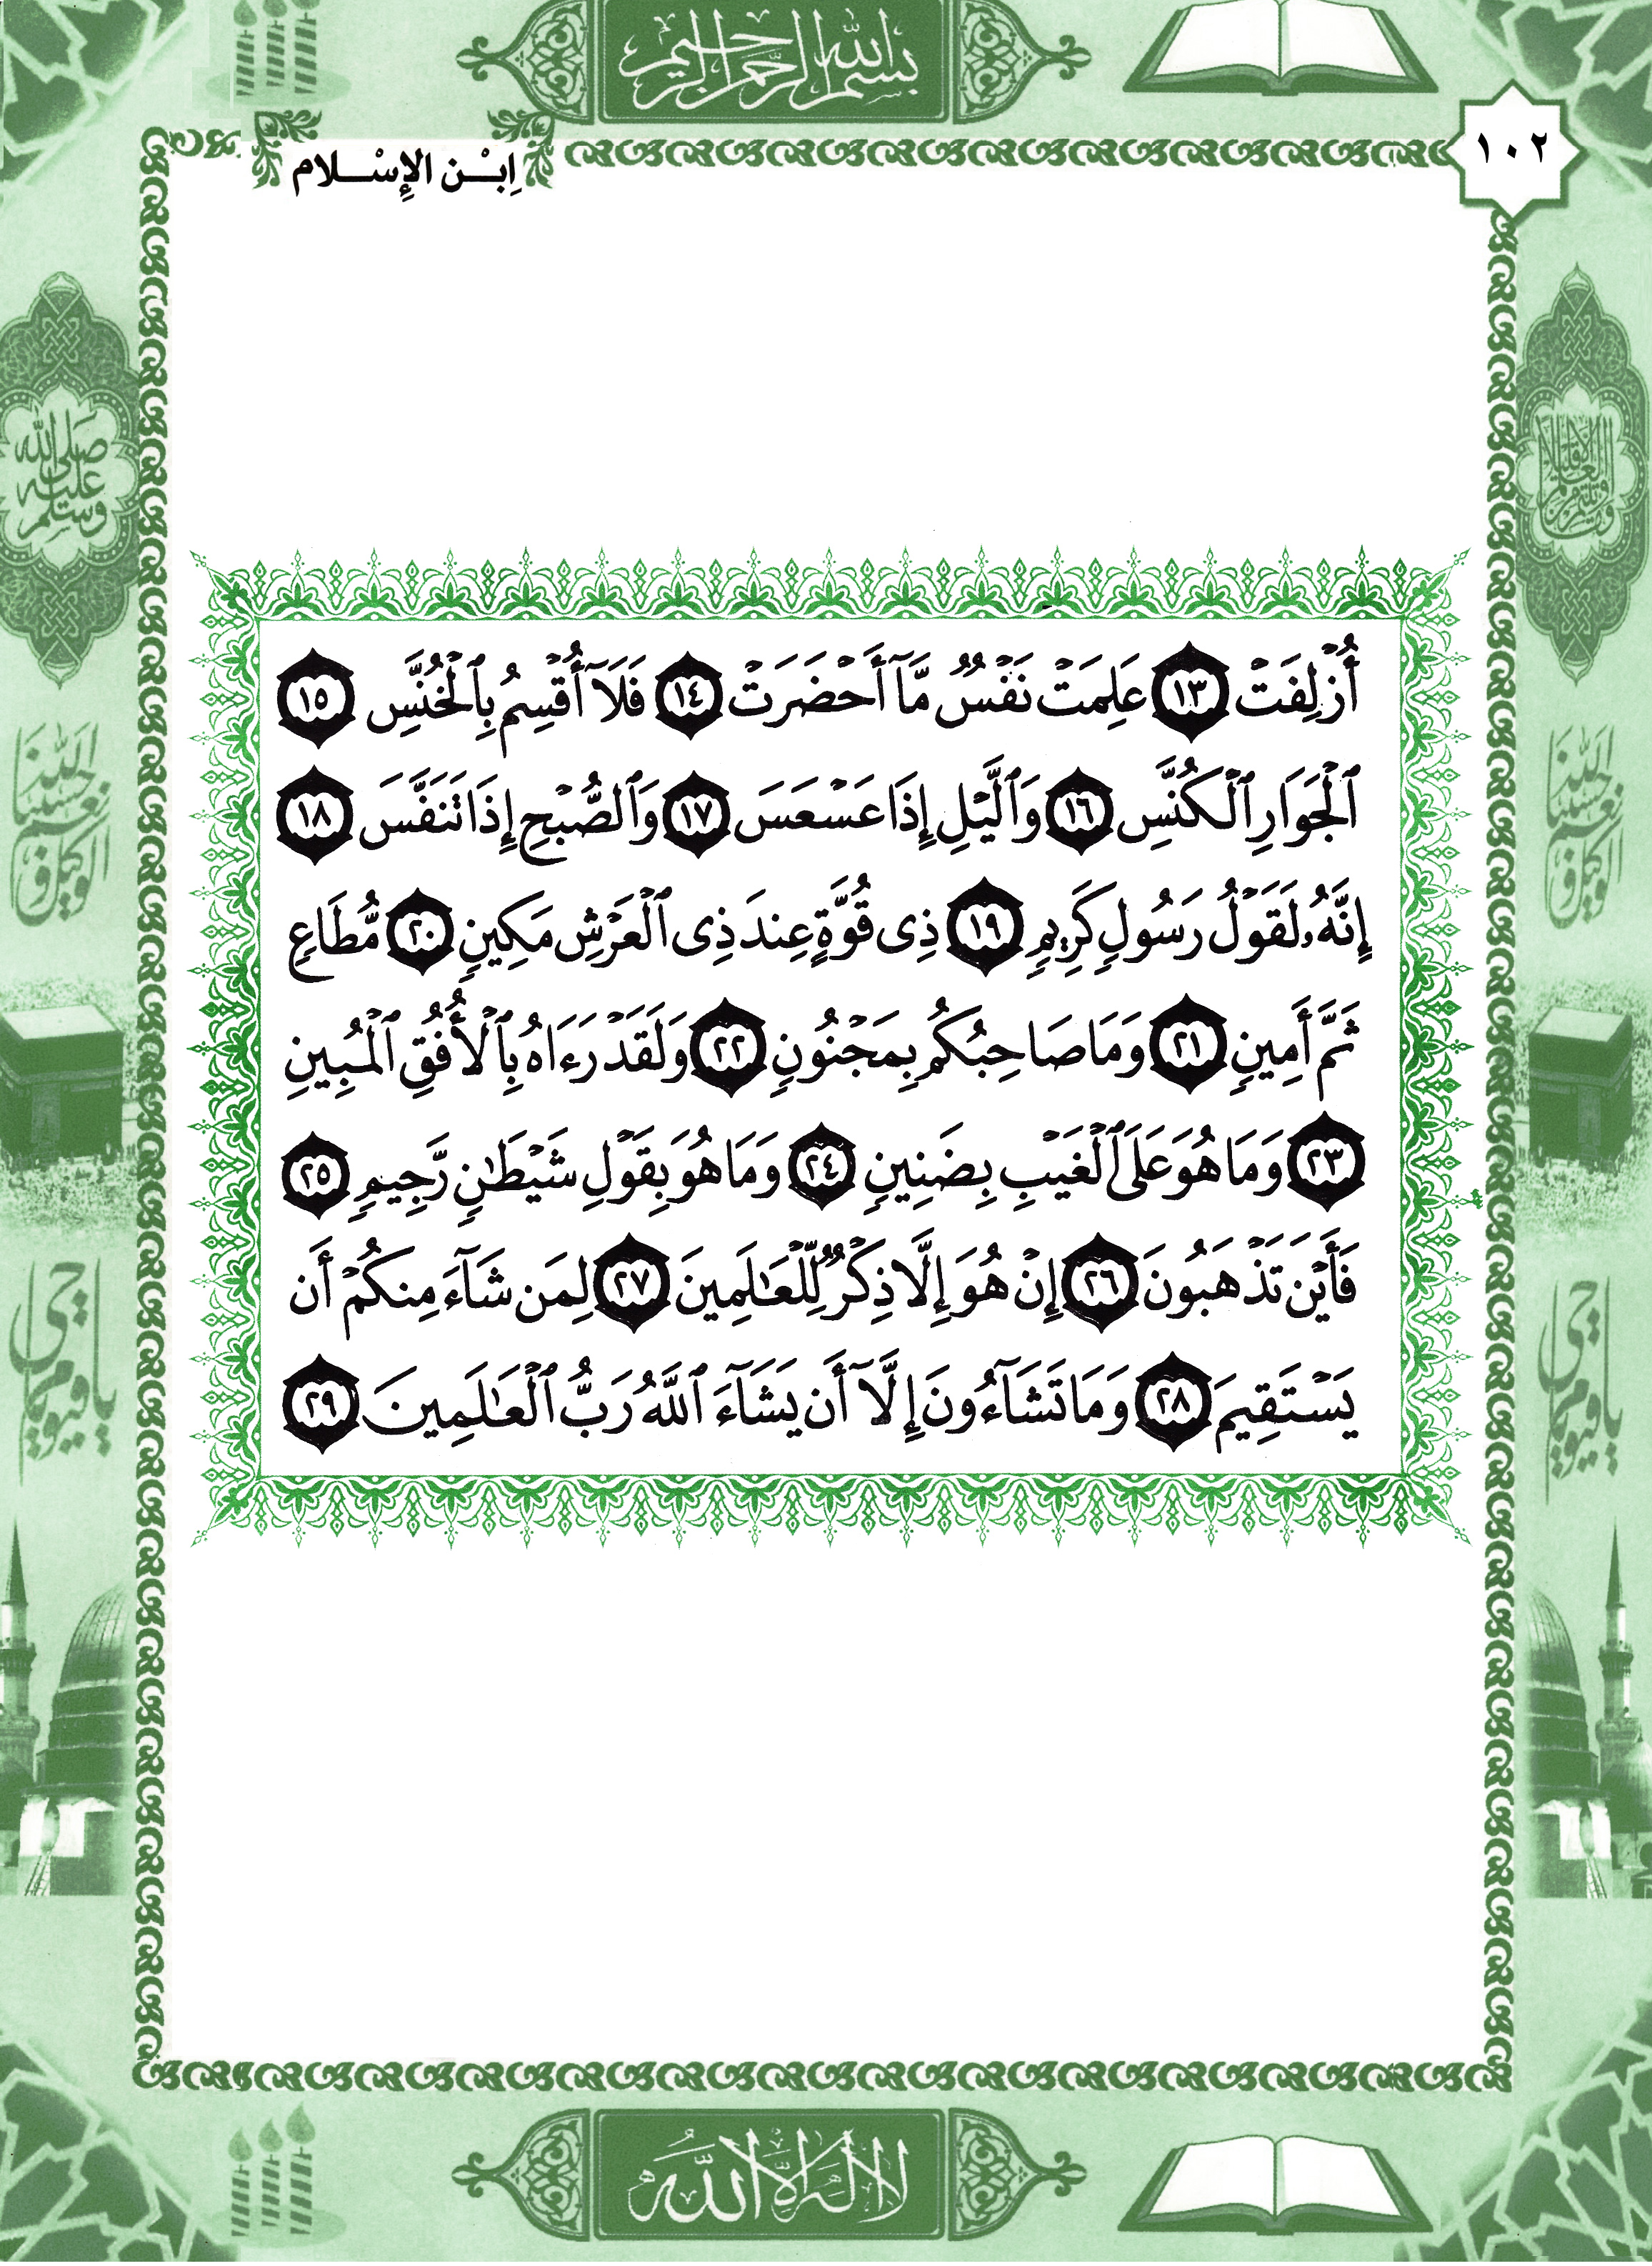 بسم الله الرحمن الرحيم
١٠٢
اِبْــن الإِسْــلام
صلى الله عليه وسلم
أُزۡلِفَتۡ ١٣ عَلِمَتۡ نَفۡسٞ مَّآ أَحۡضَرَتۡ ١٤ فَلَآ أُقۡسِمُ بِٱلۡخُنَّسِ ١٥
ٱلۡجَوَارِ ٱلۡكُنَّسِ ١٦ وَٱلَّيۡلِ إِذَا عَسۡعَسَ ١٧ وَٱلصُّبۡحِ إِذَا تَنَفَّسَ ١٨
إِنَّهُۥ لَقَوۡلُ رَسُولٖ كَرِيمٖ ١٩ ذِى قُوَّةٍ عِندَ ذِى ٱلۡعَرۡشِ مَكِينٖ ٢٠ مُّطَاعٖ
ثَمَّ أَمِينٖ ٢١ وَمَا صَاحِبُكُم بِمَجۡنُونٖ ٢٢ وَلَقَدۡ رَءَاهُ بِٱلۡأُفُقِ ٱلۡمُبِينِ
٢٣ وَمَا هُوَ عَلَى ٱلۡغَيۡبِ بِضَنِينٖ ٢٤ وَمَا هُوَ بِقَوۡلِ شَيۡطَٰنٖ رَّجِيمٖ ٢٥
فَأَيۡنَ تَذۡهَبُونَ ٢٦ إِنۡ هُوَ إِلَّا ذِكۡرٞ لِّلۡعَٰلَمِينَ ٢٧ لِمَن شَآءَ مِنكُمۡ أَن
يَسۡتَقِيمَ ٢٨ وَمَا تَشَآءُونَ إِلَّآ أَن يَشَآءَ ٱللَّهُ رَبُّ ٱلۡعَٰلَمِينَ ٢٩
حسبنا الله ونعم الوكيل
حسبنا الله ونعم الوكيل
يا حي يا قيوم
يا حي يا قيوم
لا إله إلا الله